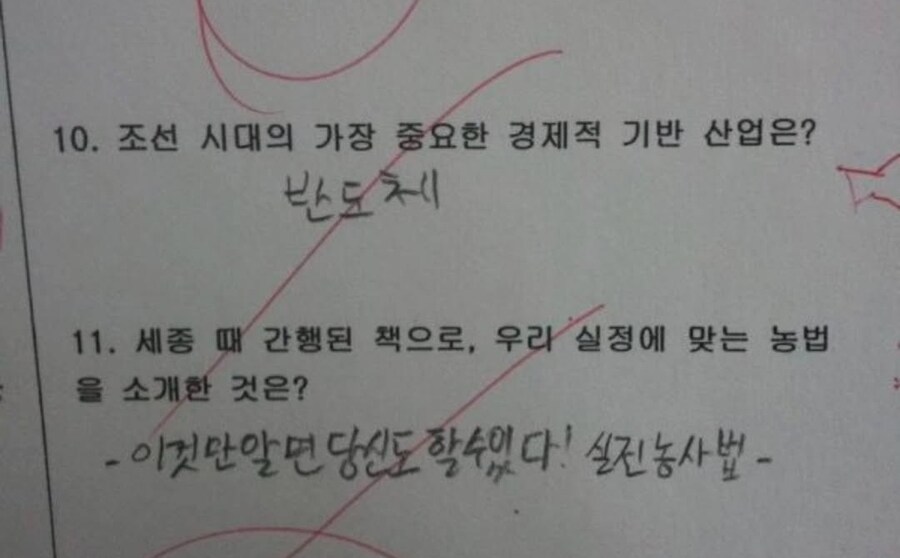 10. 조선 시대의 가장 중요한 경제적 기반 산업은?
반도체
11. 세종 때 간행된 책으로, 우리 실정에 맞는 농법
을 소개한 것은?
- 이것만알면당신도할수있다! 실진농사법 -